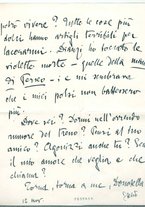 potrò vivere? Tutte le cose più
dolci hanno artigli terribili per
lacerarmi. Dianzi ho toccato le
violette morte - quelle della mano
di Perseo - e mi sembrava
che i miei polsi non battessero
più.
Dove sei? Dormi nell'orrendo
rumore del treno? Pensi al tuo
amico? Agonizzi anche tu? Senti
il mio amore che veglia e che
chiama?
Torna, torna a me,
12 nov.